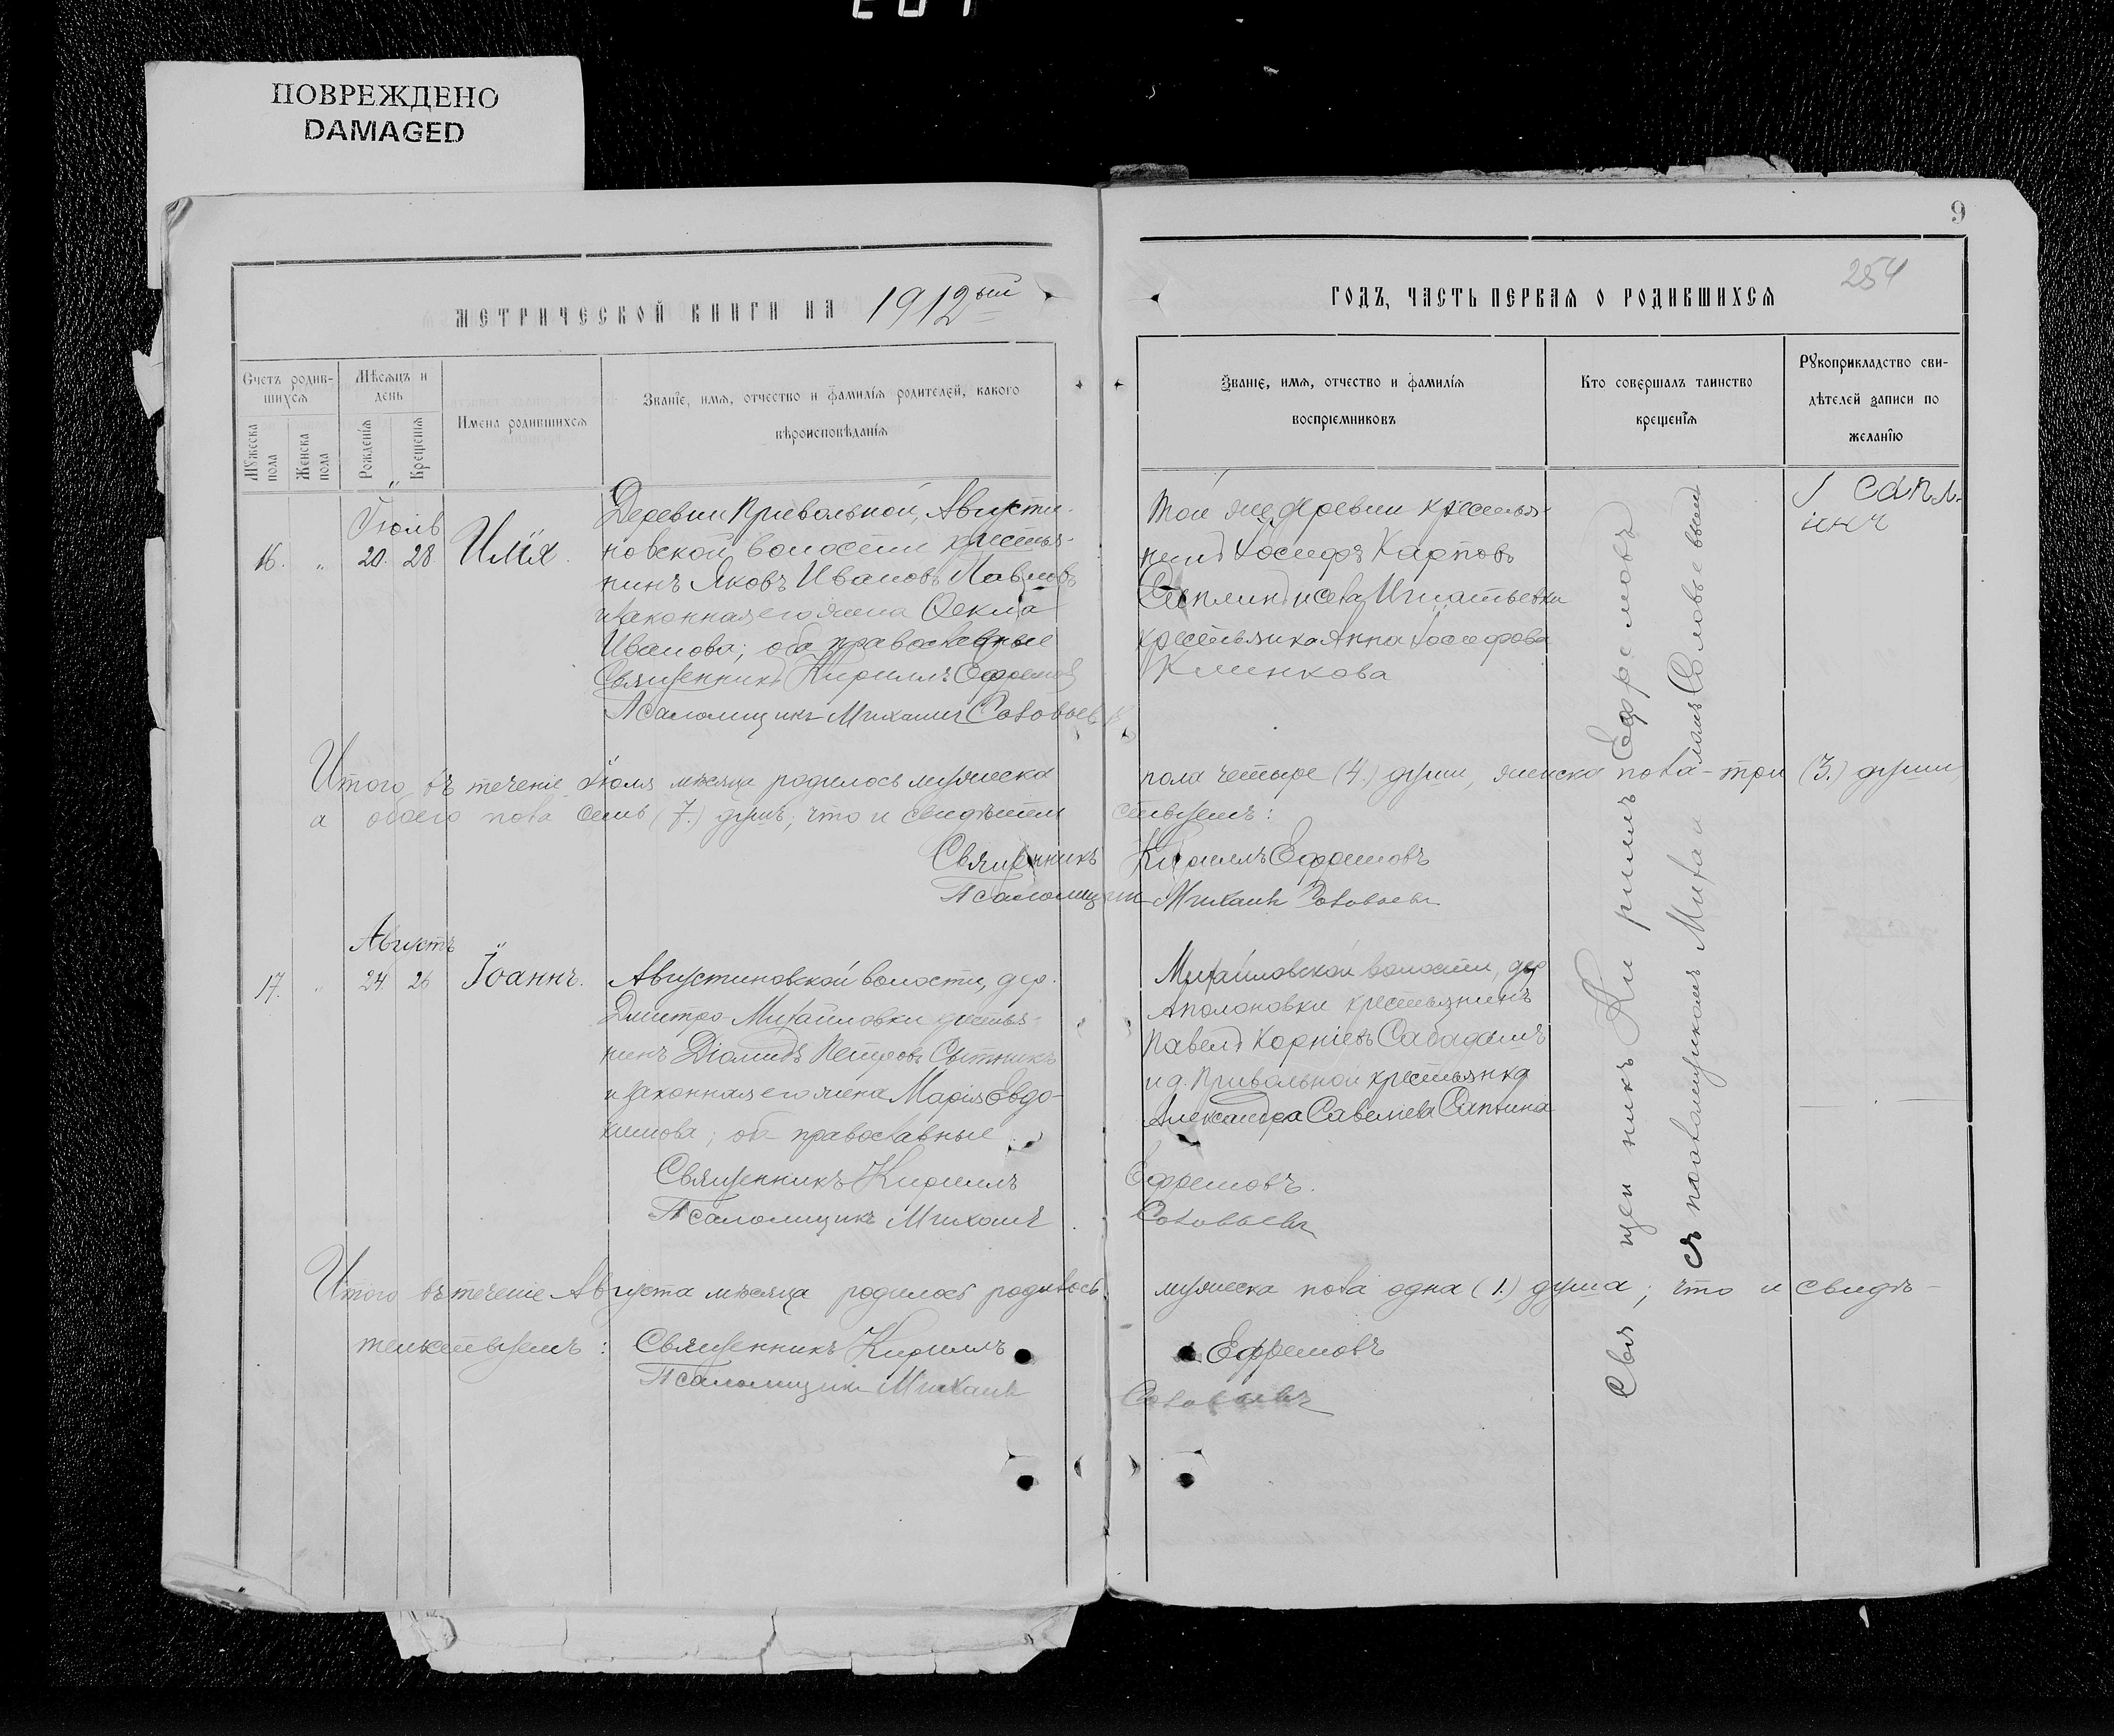 ПОВРЕЖДЕНО
DAMAGED
МЕТРИЧЕСКОЙ КНИГИ НА 1912ый
Счетъ родившихся
Мужеска пола
Женска пола
Мѣсяцъ и день
Рожденія
Крещенія
Имена родившихся
Званіе, имя, отчество и фамилія родителей, какого
вѣроисповѣданія
Іюль
16. " 20. 28. Илія.
Деревни Привольной, Августи-
новской волости крестья-
нинъ Яковъ Ивановъ Павловъ
и законная его жена Ѳекла
Иванова; оба православные
Священникъ Кириллъ Ефремовъ
Псаломщикъ Михаилъ Соловьевъ
Итого въ теченіе Іюля мѣсяца родилось мужеска
а обоего пола семь (7.) душъ; что и свидѣтель
Священникъ
Псаломщикъ
Августъ
17. " 24. 26 Іоаннъ.
Августиновской волости, дер.
Дмитро-Михайловки крестья-
нинъ Діомидъ Петровъ Сытникъ
и законная его жена Марія Евдо-
кимова; оба православные.
Священникъ Кириллъ
Псаломщикъ Михаилъ
Итого въ теченіе Августа мѣсяца родилось родилось
тельствуемъ: Священникъ Кириллъ
Псаломщикъ Михаилъ
9
254
ГОДЪ, ЧАСТЬ ПЕРВАЯ О РОДИВШИХСЯ
Званіе, имя, отчество и фамилія
воспріемниковъ
Кто совершалъ таинство
крещенія
Рукоприкладство сви-
дѣтелей записи по
желанію
Той же деревни крестья-
нинъ Іосифъ Карповъ
крестьянка Анна Іосифова
Клинкова
пола четыре (4.) души, женска пола - три (3.) души
ствуемъ:
Кириллъ Ефремовъ
Михаилъ Соловьевъ
Михайловской волости, дер
Аполоновки крестьянинъ
Павелъ Корніевъ Сабадашъ
и д. Привольной крестьянка
Александра Савеліева Сапкина
Ефремовъ.
Соловьевъ
мужеска пола одна (1.) душа; что и свидѣ-
Ефремовъ
Соловьевъ
Священникъ Кириллъ Ефремовъ
съ псаломщикомъ Михаиломъ Соловьевымъ